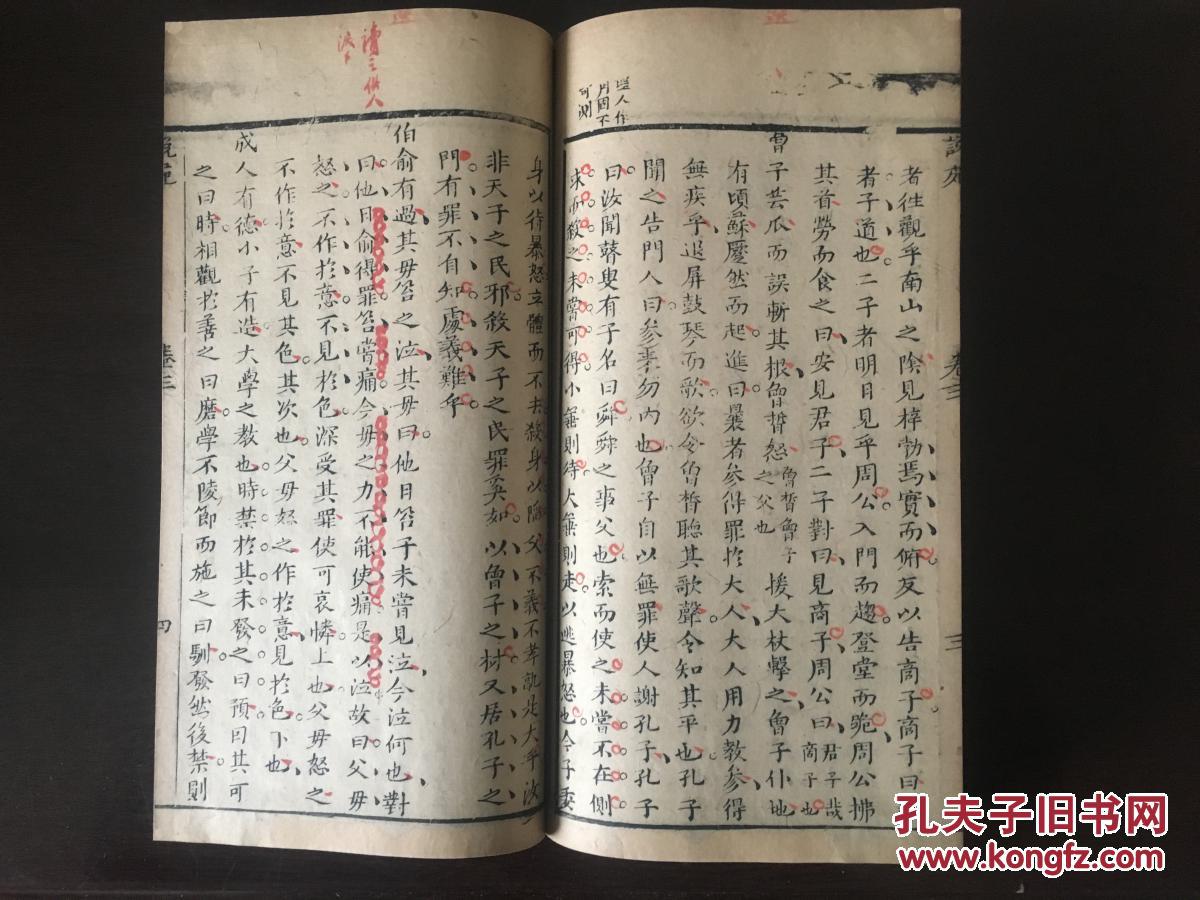 者往觀乎南山之陰見梓勃焉實而俯反以告商子商子曰梓
者子道也二子者明日見乎周公入門而趨登堂而跪周公拂
其首勞而食之曰安見君子二子對曰見商子周公曰君子哉商子也
曾子芸瓜而誤斬其根曾晳怒曾晳曾子之父也援大杖擊之曾子仆地
有頃蘇蹷然而起進曰曩者參得罪於大人大人用力教參得
無疾乎退屏鼓琴而歌欲令曾晳聽其歌聲令知其平也孔子
聞之告門人曰參來勿內也曾子自以無罪使人謝孔子孔子
曰汝聞瞽叟有子名曰舜舜之事父也索而使之未嘗不在側
求而殺之未嘗可得小箠則待大箠則走以逃暴怒也今子委
聖人作用固不可測
說苑
卷三
三
身以待暴怒立體而不去殺身以陷父不義不孝孰是大乎汝
非天子之民邪殺天子之民罪奚如以曾子之材又居孔子之
門有罪不自知處義難乎
伯俞有過其母笞之泣其母曰他日笞子未嘗見泣今泣何也對
曰他日俞得罪笞嘗痛今母之力不能使痛是以泣故曰父母
怒之不作於意不見於色深受其罪使可哀憐上也父母怒之
不作於意不見其色其次也父母怒之作於意見於色下也
成人有德小子有造大學之教也時禁於其未發之曰預因其可
之曰時相觀於善之曰磨學不陵節而施之曰馴發然後禁則
讀之使人淚下
卷三
四
孔夫子旧书网
www.kongfz.com